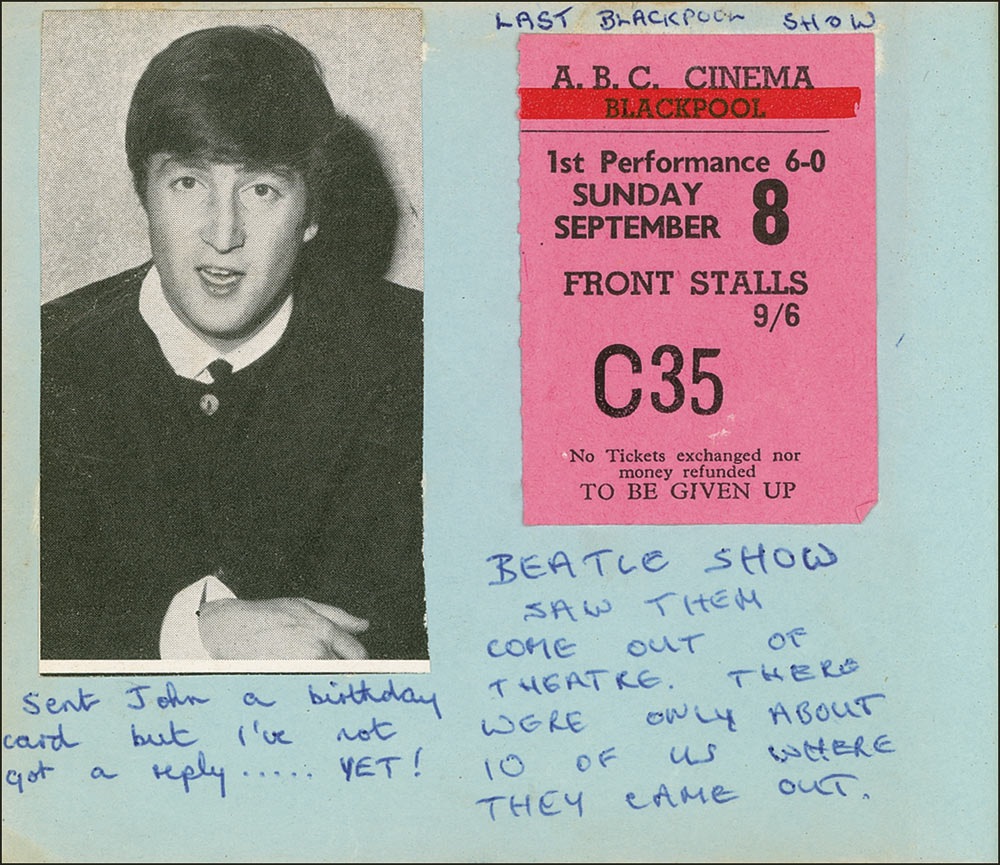 LAST BLACKPOOL SHOW
A. B. C. CINEMA
BLACKPOOL
1st Performance 6-0
SUNDAY
SEPTEMBER 8
FRONT STALLS
9/6
C35
No Tickets exchanged nor
money refunded
TO BE GIVEN UP
BEATLE SHOW
SAW THEM
COME OUT OF
THEATRE. THERE
WERE ONLY ABOUT
10 OF US WHERE
THEY CAME OUT.
Sent John a birthday
card but I've not
got a reply..... YET!